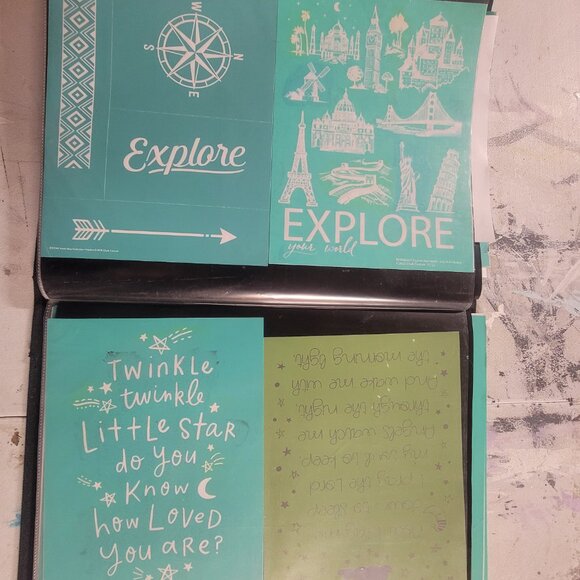 W
S N
E
Explore
EXPLORE
your world
TWINKLE
twinkle
Little Star
do you
Know
how Loved
you are?
Now I lay me
down to sleep
I pray the Lord
my soul to keep
Angels watch me
through the night
And wake me with
the morning light